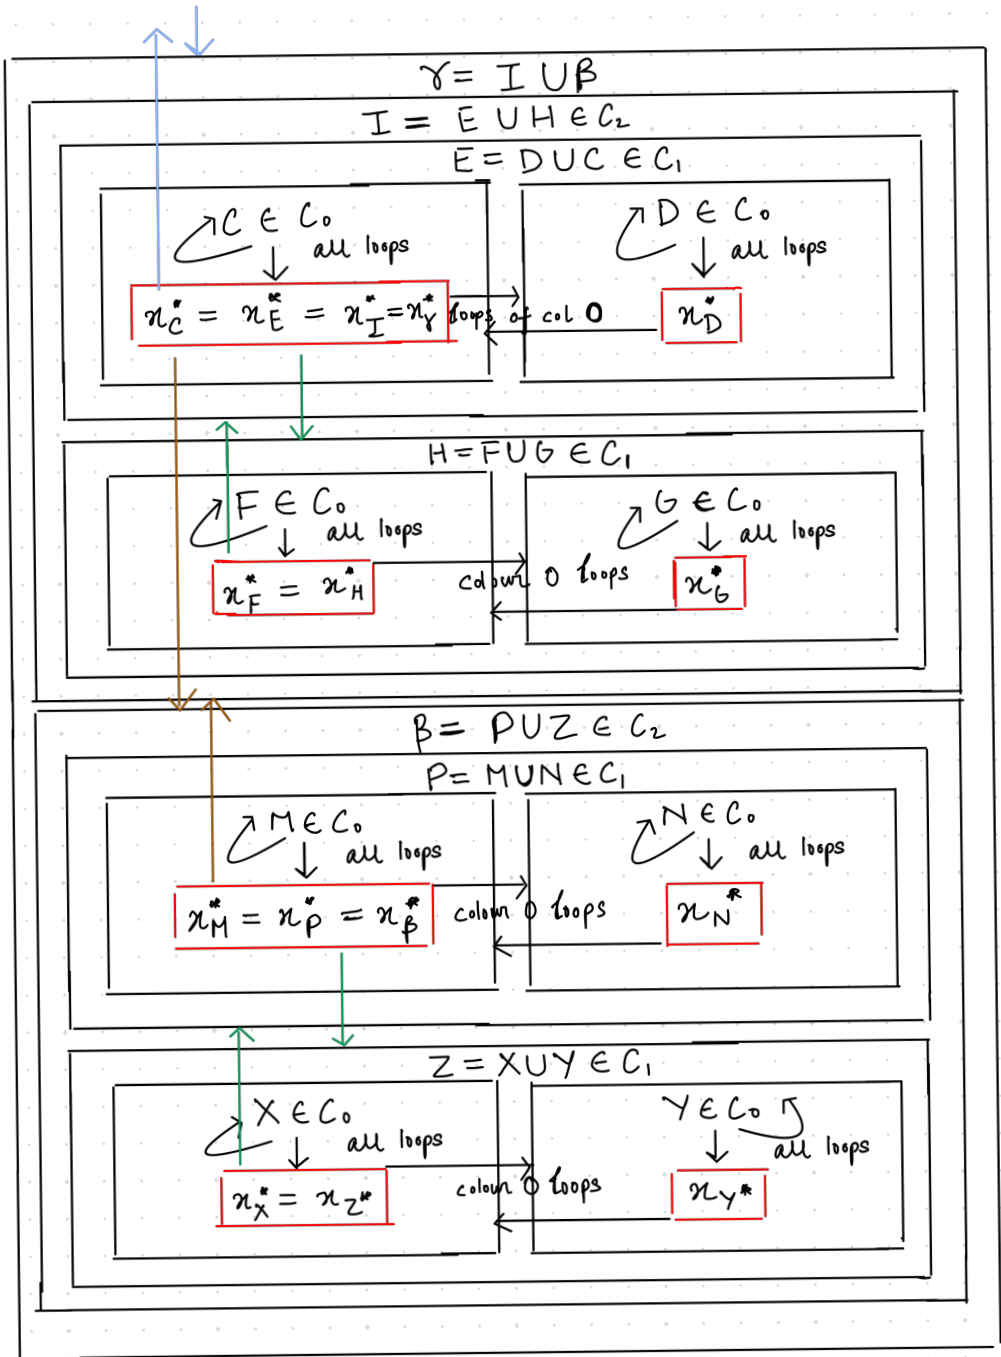 γ = I ∪ β
I = E ∪ H ∈ C₂
E = D ∪ C ∈ C₁
C ∈ C₀
all loops
x*_C = x*_E = x*_I = x*_γ
loops of col 0
D ∈ C₀
all loops
x*_D
H = F ∪ G ∈ C₁
F ∈ C₀
all loops
x*_F = x*_H
colour 0 loops
G ∈ C₀
all loops
x*_G
β = P ∪ Z ∈ C₂
P = M ∪ N ∈ C₁
M ∈ C₀
all loops
x*_M = x*_P = x*_β
colour 0 loops
N ∈ C₀
all loops
x_N*
Z = X ∪ Y ∈ C₁
X ∈ C₀
all loops
x*_X = x_Z*
colour 0 loops
Y ∈ C₀
all loops
x_Y*